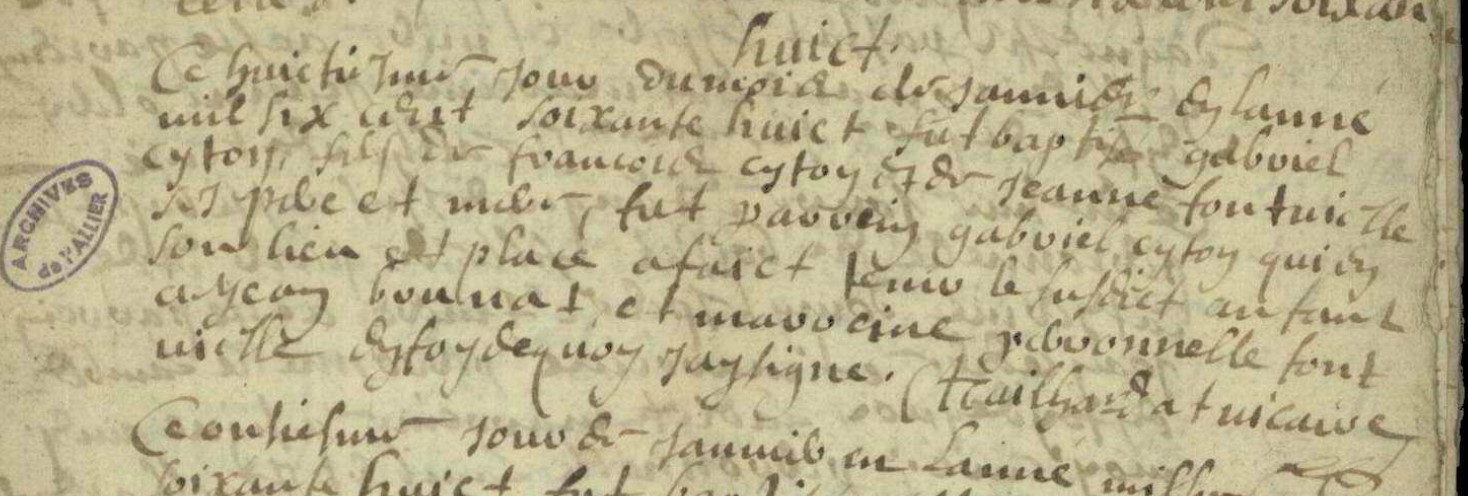 soixan
huict.
Ce huictiesme jour du mois de janvier en lanne
mil six cent soixante huict fut baptise gabriel
cyton, fils de francois cyton et de jeanne fontvielle
ses pere et mere, fut parrein gabriel cyton qui en
son lieu et place a faict tenir le susdict anfant
a jean bonnat et marreine perronnelle font
vielle en foy de quoy jay signe. Trailhardat vicaire
ARCHIVES
de l'ALLIER
Ce onsiesme jour de janvier en lanne mil
soixante huict fut